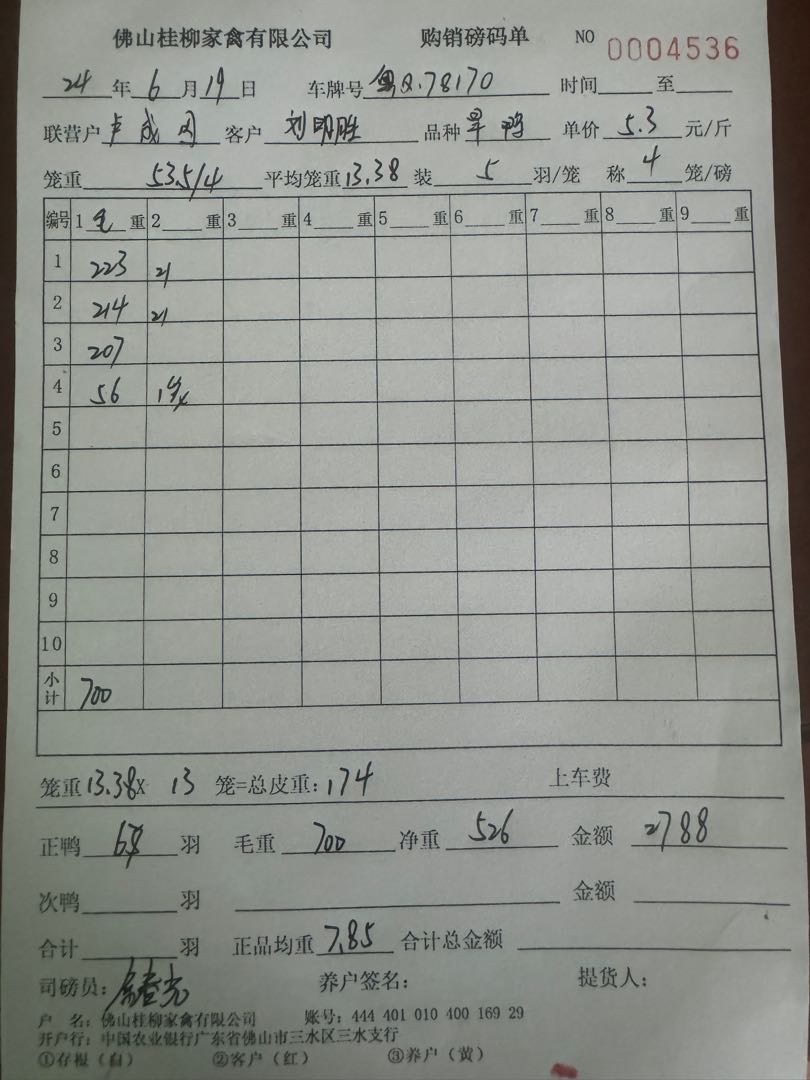 佛山桂柳家禽有限公司 购销磅码单 NO 0004536
24 年 6 月 19 日 车牌号 粤Q.78170 时间 至
联营户 卢成 客户 刘明胜 品种 旱鸭 单价 5.3 元/斤
笼重 53.5/4 平均笼重 13.38 装 5 羽/笼 称 4 笼/磅
编号 1 毛 重 2 重 3 重 4 重 5 重 6 重 7 重 8 重 9 重
1 223 21
2 214 21
3 207
4 56
5
6
7
8
9
10
小计 700
笼重 13.38 X 13 笼=总皮重: 174 上车费
正鸭 羽 毛重 700 净重 526 金额 2788
次鸭 羽 金额
合计 羽 正品均重 7.85 合计总金额
司磅员: 养户签名: 提货人:
户 名: 佛山桂柳家禽有限公司 账号: 444 401 010 400 169 29
开户行: 中国农业银行广东省佛山市三水区三水支行
①存根(白) ②客户(红) ③养户(黄)